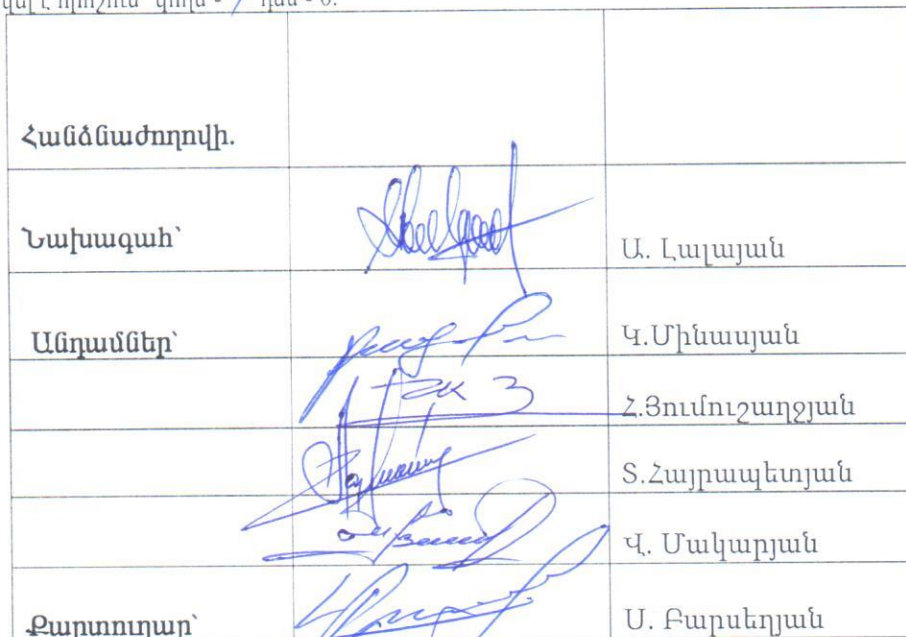 Հանձնաժողովի.
Նախագահ՝ Ա. Լալայան
Անդամներ՝ Կ.Մինասյան
Հ.Յումուշաղջյան
Տ.Հայրապետյան
Վ. Մակարյան
Քարտուղար՝ Ս. Բարսեղյան